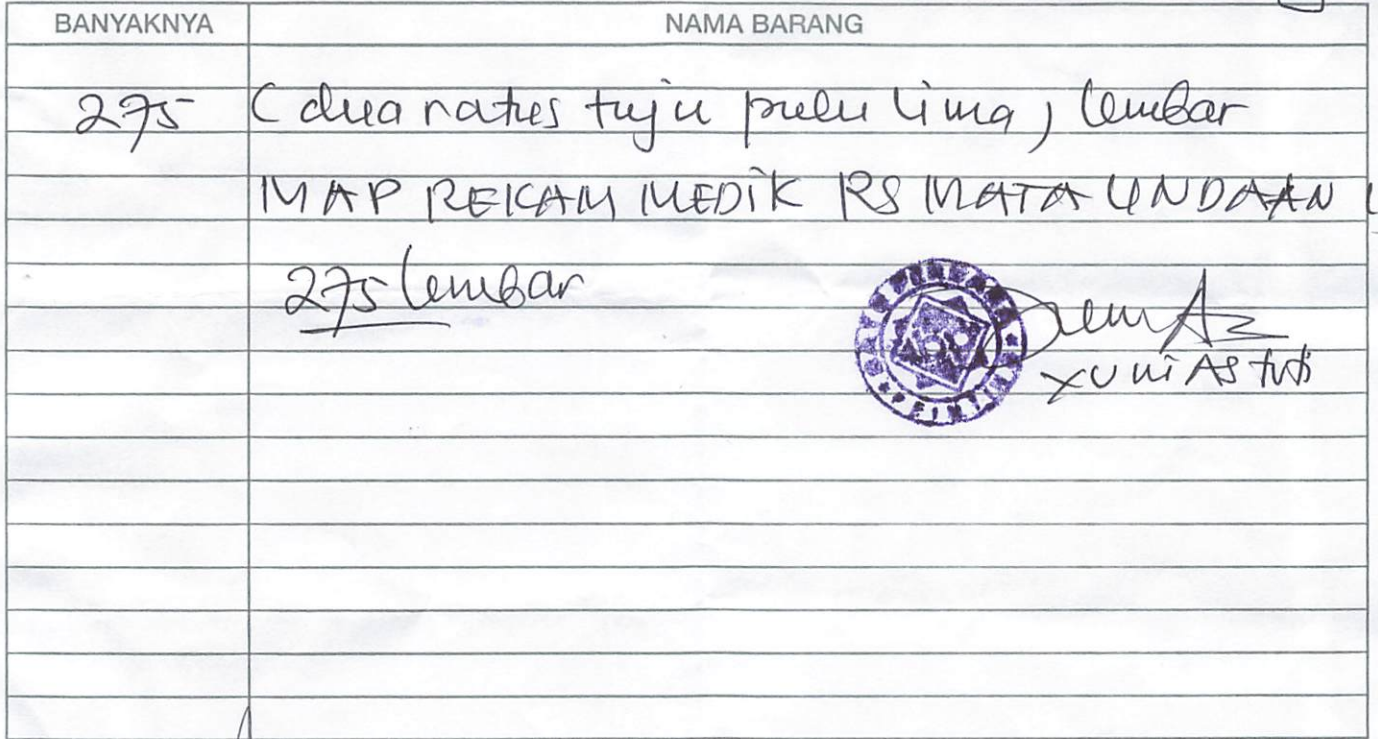 BANYAKNYA NAMA BARANG
275 (dua ratus tuju pulu lima) lembar
MAP REKAM MEDIK RS MATA UNDAAN
275 lembar
Yuni Astuti